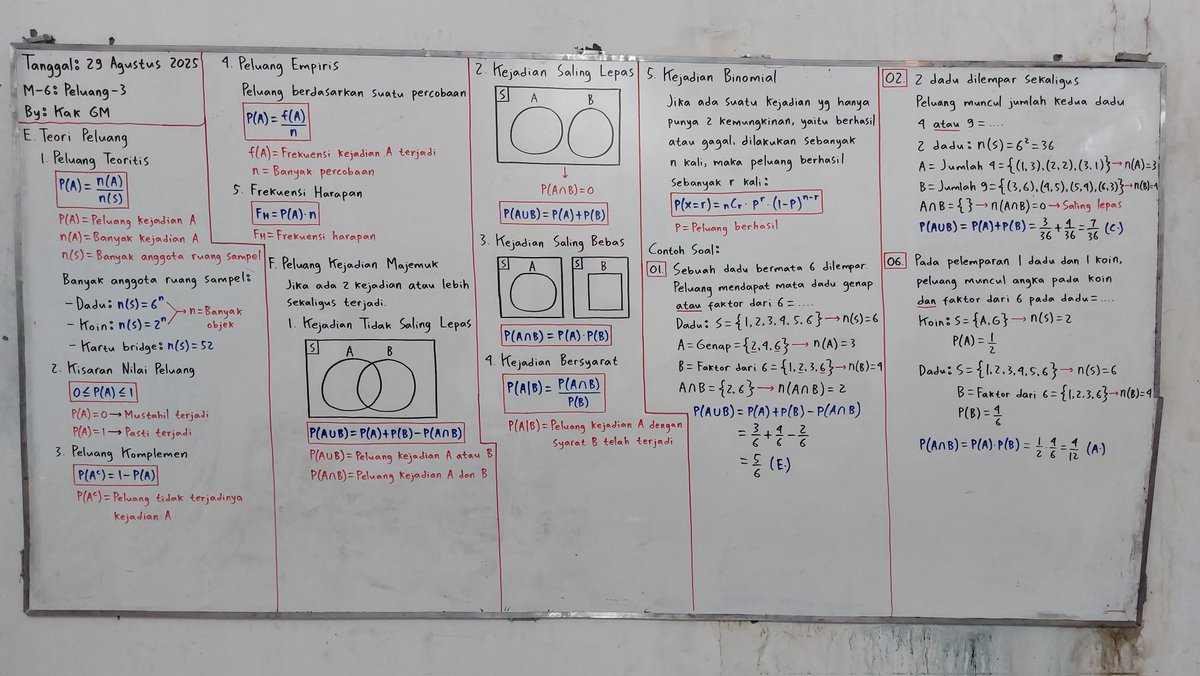 Tanggal: 29 Agustus 2025
M-6: Peluang-3
By: Kak GM
E. Teori Peluang
1. Peluang Teoritis
P(A) = n(A)/n(S)
P(A) = Peluang kejadian A
n(A) = Banyak kejadian A
n(S) = Banyak anggota ruang sampel
Banyak anggota ruang sampel:
- Dadu: n(S) = 6ⁿ
- Koin: n(S) = 2ⁿ
→ n = Banyak objek
- Kartu bridge: n(S) = 52
2. Kisaran Nilai Peluang
0 ≤ P(A) ≤ 1
P(A) = 0 → Mustahil terjadi
P(A) = 1 → Pasti terjadi
3. Peluang Komplemen
P(Aᶜ) = 1 - P(A)
P(Aᶜ) = Peluang tidak terjadinya
kejadian A
4. Peluang Empiris
Peluang berdasarkan suatu percobaan
P(A) = f(A)/n
f(A) = Frekuensi kejadian A terjadi
n = Banyak percobaan
5. Frekuensi Harapan
FH = P(A) · n
FH = Frekuensi harapan
F. Peluang Kejadian Majemuk
Jika ada 2 kejadian atau lebih
sekaligus terjadi.
1. Kejadian Tidak Saling Lepas
S
A B
P(A∪B) = P(A) + P(B) - P(A∩B)
P(A∪B) = Peluang kejadian A atau B
P(A∩B) = Peluang kejadian A dan B
2. Kejadian Saling Lepas
S
A B
↓
P(A∩B) = 0
P(A∪B) = P(A) + P(B)
3. Kejadian Saling Bebas
S A S B
P(A∩B) = P(A) · P(B)
4. Kejadian Bersyarat
P(A|B) = P(A∩B)/P(B)
P(A|B) = Peluang kejadian A dengan
syarat B telah terjadi
5. Kejadian Binomial
Jika ada suatu kejadian yg hanya
punya 2 kemungkinan, yaitu berhasil
atau gagal. dilakukan sebanyak
n kali, maka peluang berhasil
Sebanyak r kali:
P(x=r) = nCr · Pʳ · (1-P)ⁿ⁻ʳ
P = Peluang berhasil
Contoh Soal:
01. Sebuah dadu bermata 6 dilempar.
Peluang mendapat mata dadu genap
atau faktor dari 6 = ....
Dadu: S = {1,2,3,4,5,6} → n(S) = 6
A = Genap = {2,4,6} → n(A) = 3
B = Faktor dari 6 = {1,2,3,6} → n(B) = 4
A∩B = {2,6} → n(A∩B) = 2
P(A∪B) = P(A) + P(B) - P(A∩B)
= 3/6 + 4/6 - 2/6
= 5/6 (E.)
02. 2 dadu dilempar sekaligus
Peluang muncul jumlah kedua dadu
4 atau 9 = ....
2 dadu: n(S) = 6² = 36
A = Jumlah 4 = {(1,3), (2,2), (3,1)} → n(A) = 3
B = Jumlah 9 = {(3,6), (4,5), (5,4), (6,3)} → n(B) = 4
A∩B = { } → n(A∩B) = 0 → Saling lepas
P(A∪B) = P(A) + P(B) = 3/36 + 4/36 = 7/36 (C.)
06. Pada pelemparan 1 dadu dan 1 koin,
peluang muncul angka pada koin
dan faktor dari 6 pada dadu = ....
Koin: S = {A,G} → n(S) = 2
P(A) = 1/2
Dadu: S = {1,2,3,4,5,6} → n(S) = 6
B = Faktor dari 6 = {1,2,3,6} → n(B) = 4
P(B) = 4/6
P(A∩B) = P(A) · P(B) = 1/2 · 4/6 = 4/12 (A.)